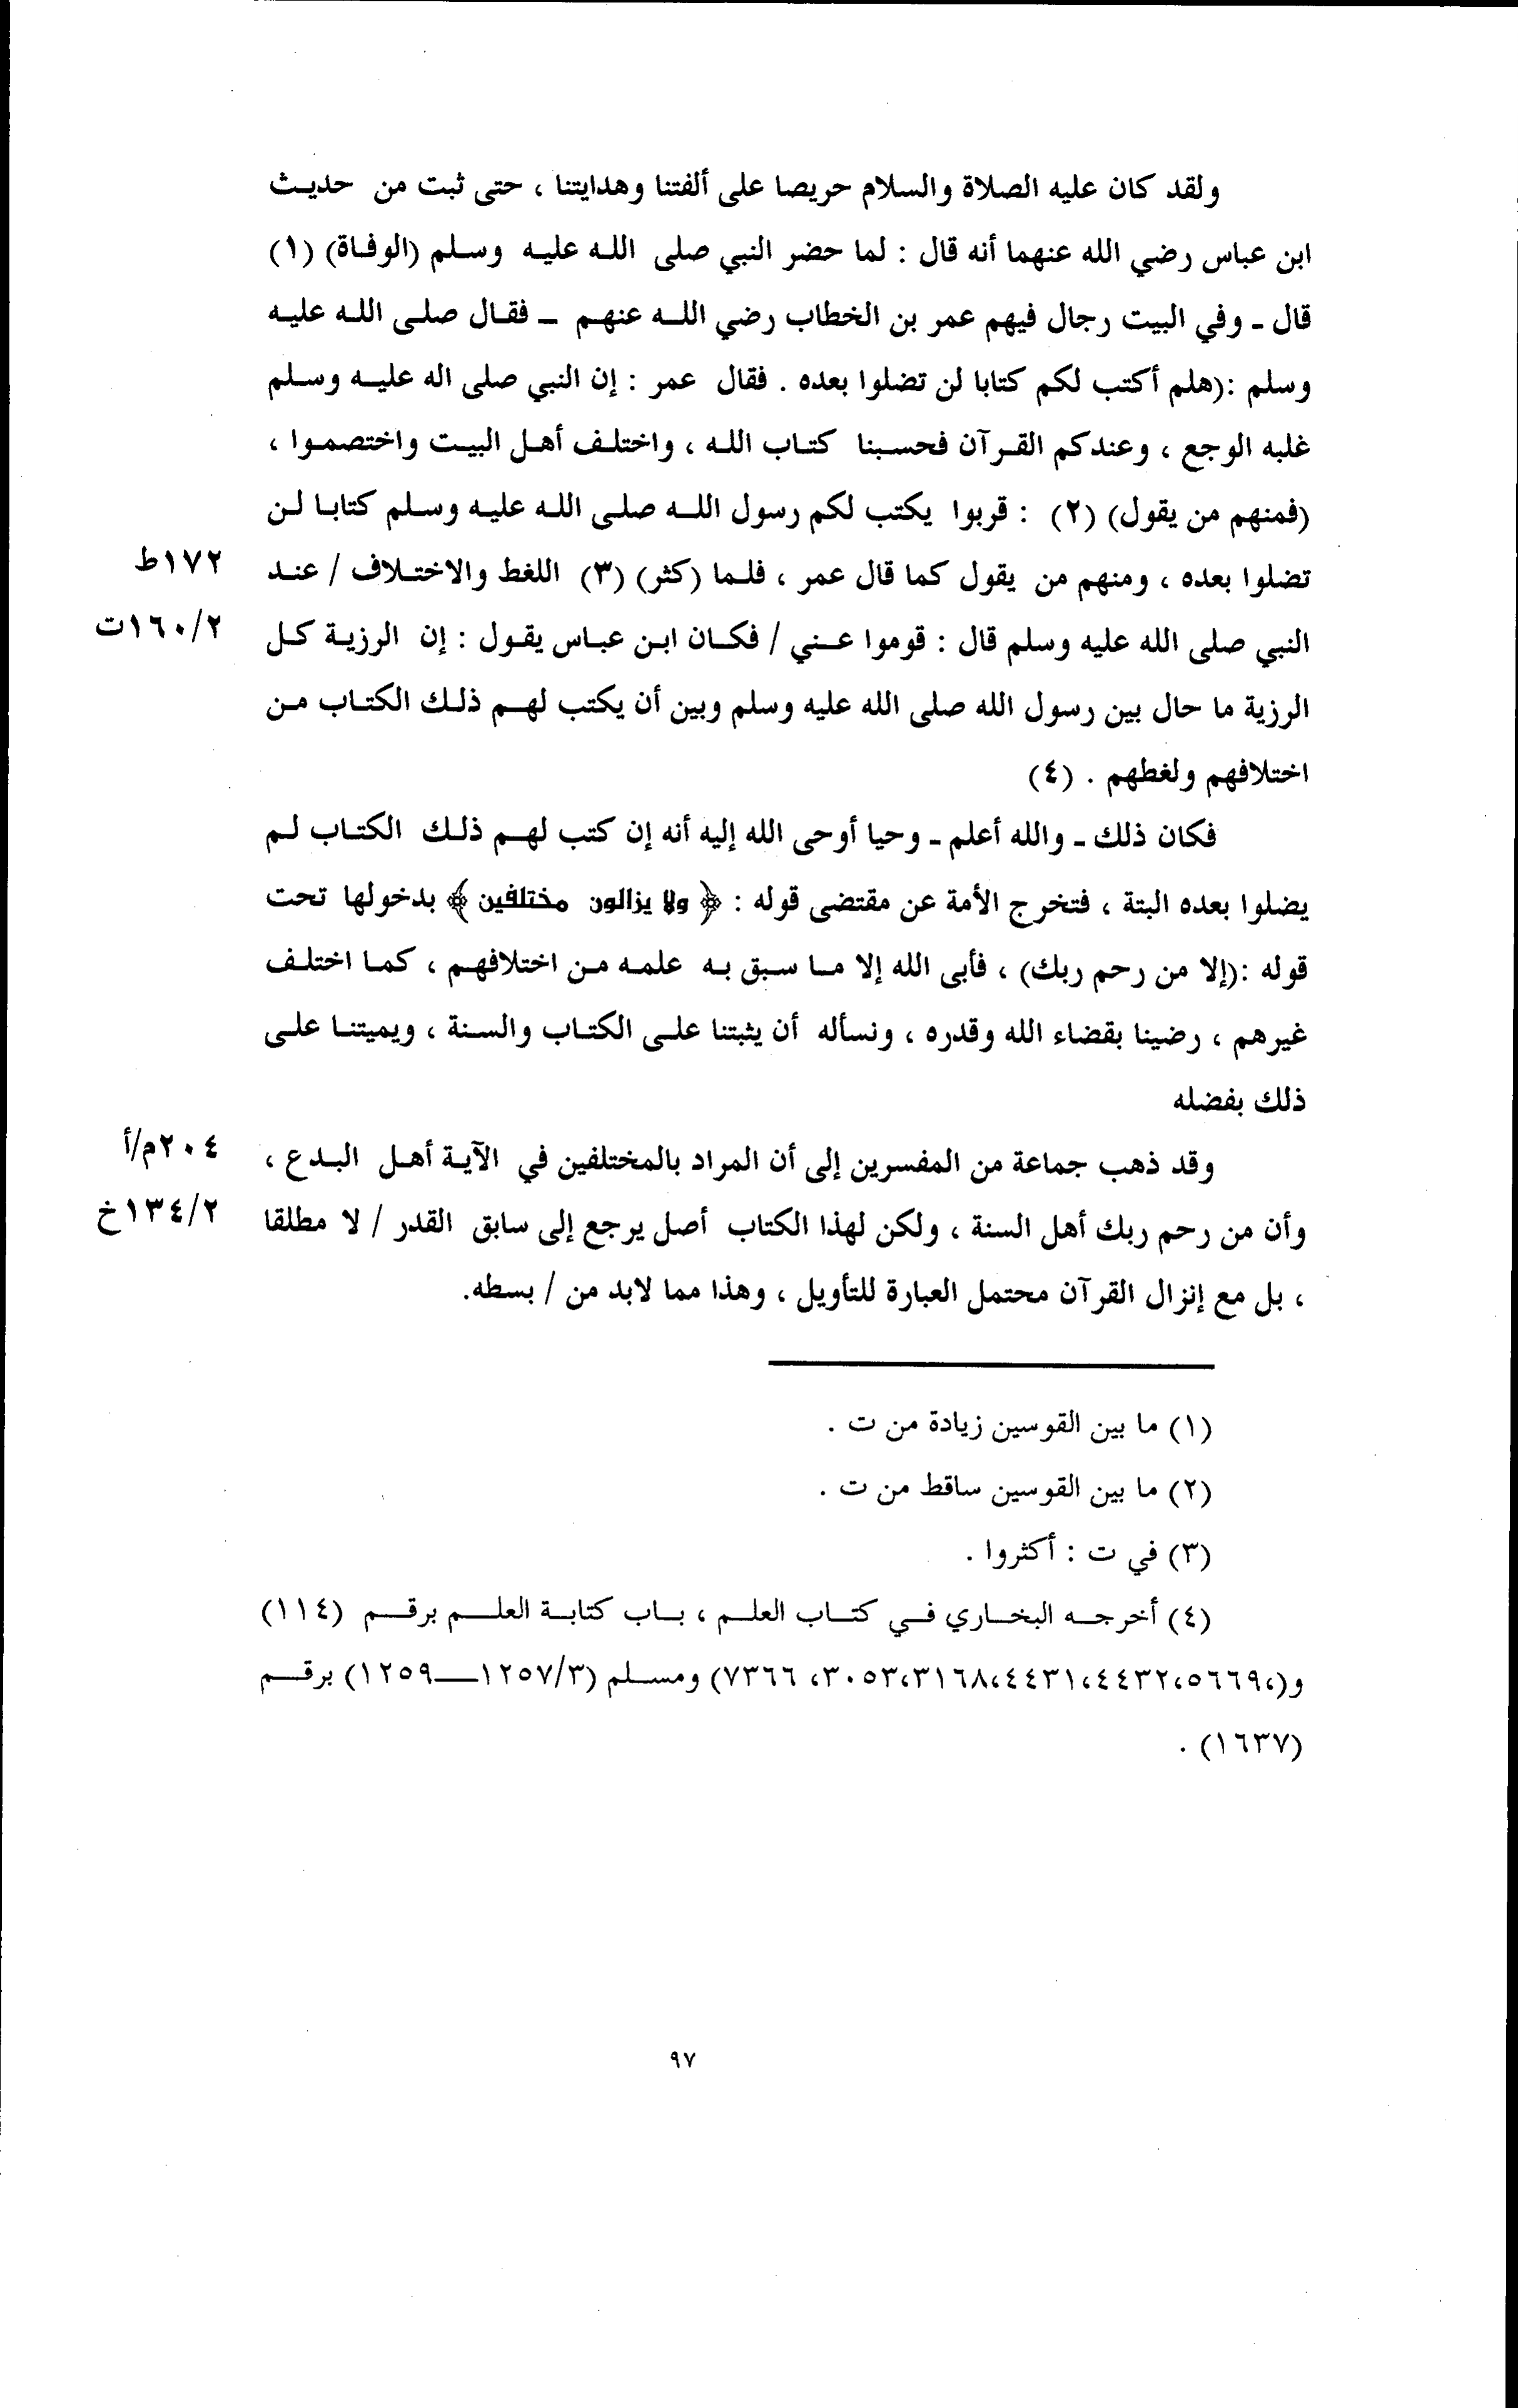 ولقد كان عليه الصلاة والسلام حريصا على ألفتنا وهدايتنا ، حتى ثبت من حديث
ابن عباس رضي الله عنهما أنه قال : لما حضر النبي صلى الله عليه وسلم (الوفاة) (١)
قال ـ وفي البيت رجال فيهم عمر بن الخطاب رضي الله عنهم ـ فقال صلى الله عليه
وسلم :(هلم أكتب لكم كتابا لن تضلوا بعده . فقال عمر : إن النبي صلى اله عليه وسلم
غلبه الوجع ، وعندكم القرآن فحسبنا كتاب الله ، واختلف أهل البيت واختصموا ،
(فمنهم من يقول) (٢) : قربوا يكتب لكم رسول الله صلى الله عليه وسلم كتابا لن
تضلوا بعده ، ومنهم من يقول كما قال عمر ، فلما (كثر) (٣) اللغط والاختلاف / عند
١٧٢ط
النبي صلى الله عليه وسلم قال : قوموا عني / فكان ابن عباس يقول : إن الرزية كل
١٦٠/٢ت
الرزية ما حال بين رسول الله صلى الله عليه وسلم وبين أن يكتب لهم ذلك الكتاب من
اختلافهم ولغطهم . (٤)
فكان ذلك ـ والله أعلم ـ وحيا أوحى الله إليه أنه إن كتب لهم ذلك الكتاب لم
يضلوا بعده البتة ، فتخرج الأمة عن مقتضى قوله : ﴿ ولا يزالون مختلفين ﴾ بدخولها تحت
قوله :(إلا من رحم ربك) ، فأبى الله إلا ما سبق به علمه من اختلافهم ، كما اختلف
غيرهم ، رضينا بقضاء الله وقدره ، ونسأله أن يثبتنا على الكتاب والسنة ، ويميتنا على
ذلك بفضله
وقد ذهب جماعة من المفسرين إلى أن المراد بالمختلفين في الآية أهل البدع ،
٢٠٤م/أ
وأن من رحم ربك أهل السنة ، ولكن لهذا الكتاب أصل يرجع إلى سابق القدر / لا مطلقا
١٣٤/٢خ
، بل مع إنزال القرآن محتمل العبارة للتأويل ، وهذا مما لابد من / بسطه.
(١) ما بين القوسين زيادة من ت .
(٢) ما بين القوسين ساقط من ت .
(٣) في ت : أكثروا .
(٤) أخرجه البخاري في كتاب العلم ، باب كتابة العلم برقم (١١٤)
و(،٥٦٦٩،٤٤٣٢،٤٤٣١،٣١٦٨،٣٠٥٣، ٧٣٦٦) ومسلم (١٢٥٧/٣ــ١٢٥٩) برقم
(١٦٣٧) .
٩٧